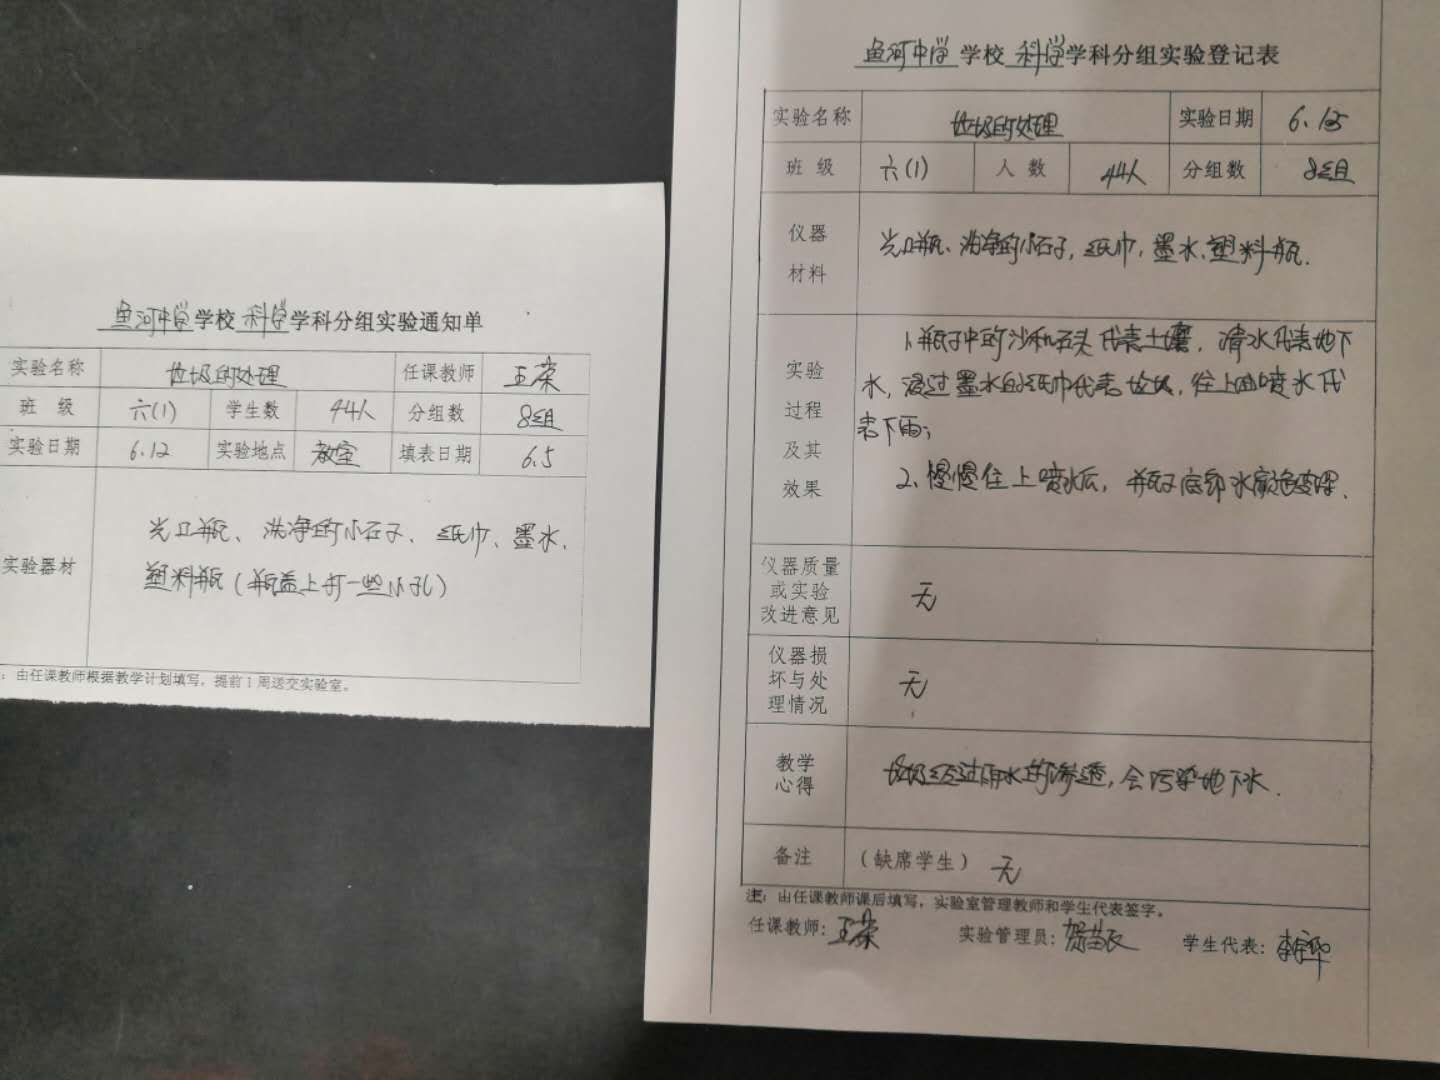 鱼河中学学校 科学学科分组实验通知单
实验名称 垃圾的处理 任课教师 王荣
班级 六(1) 学生数 44人 分组数 8组
实验日期 6.12 实验地点 教室 填表日期 6.5
实验器材
光口瓶、洗净的小石子、纸巾、墨水、
塑料瓶(瓶盖上打一些小孔)
:由任课教师根据教学计划填写,提前1周送交实验室。
鱼河中学学校 科学学科分组实验登记表
实验名称 垃圾的处理 实验日期 6.
班级 六(1) 人数 44人 分组数 8组
仪器
材料
光口瓶、洗净的小石子,纸巾,墨水,塑料瓶.
实验
过程
及其
效果
1.瓶子中的沙和石头代表土壤,清水代表地下
水,浸过墨水的纸巾代表垃圾,往上面喷水代
表下雨;
2、慢慢往上喷水后,瓶子底部水颜色变深.
仪器质量
或实验
改进意见
无
仪器损
坏与处
理情况
无
教学
心得
垃圾经过雨水的渗透,会污染地下水.
备注 (缺席学生) 无
注:由任课教师课后填写,实验室管理教师和学生代表签字。
任课教师:王荣 实验管理员: 学生代表: